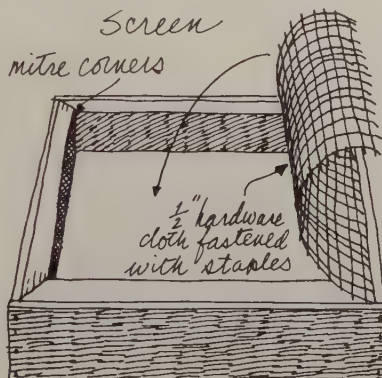 Screen
mitre corners
1/2" hardware
cloth fastened
with staples